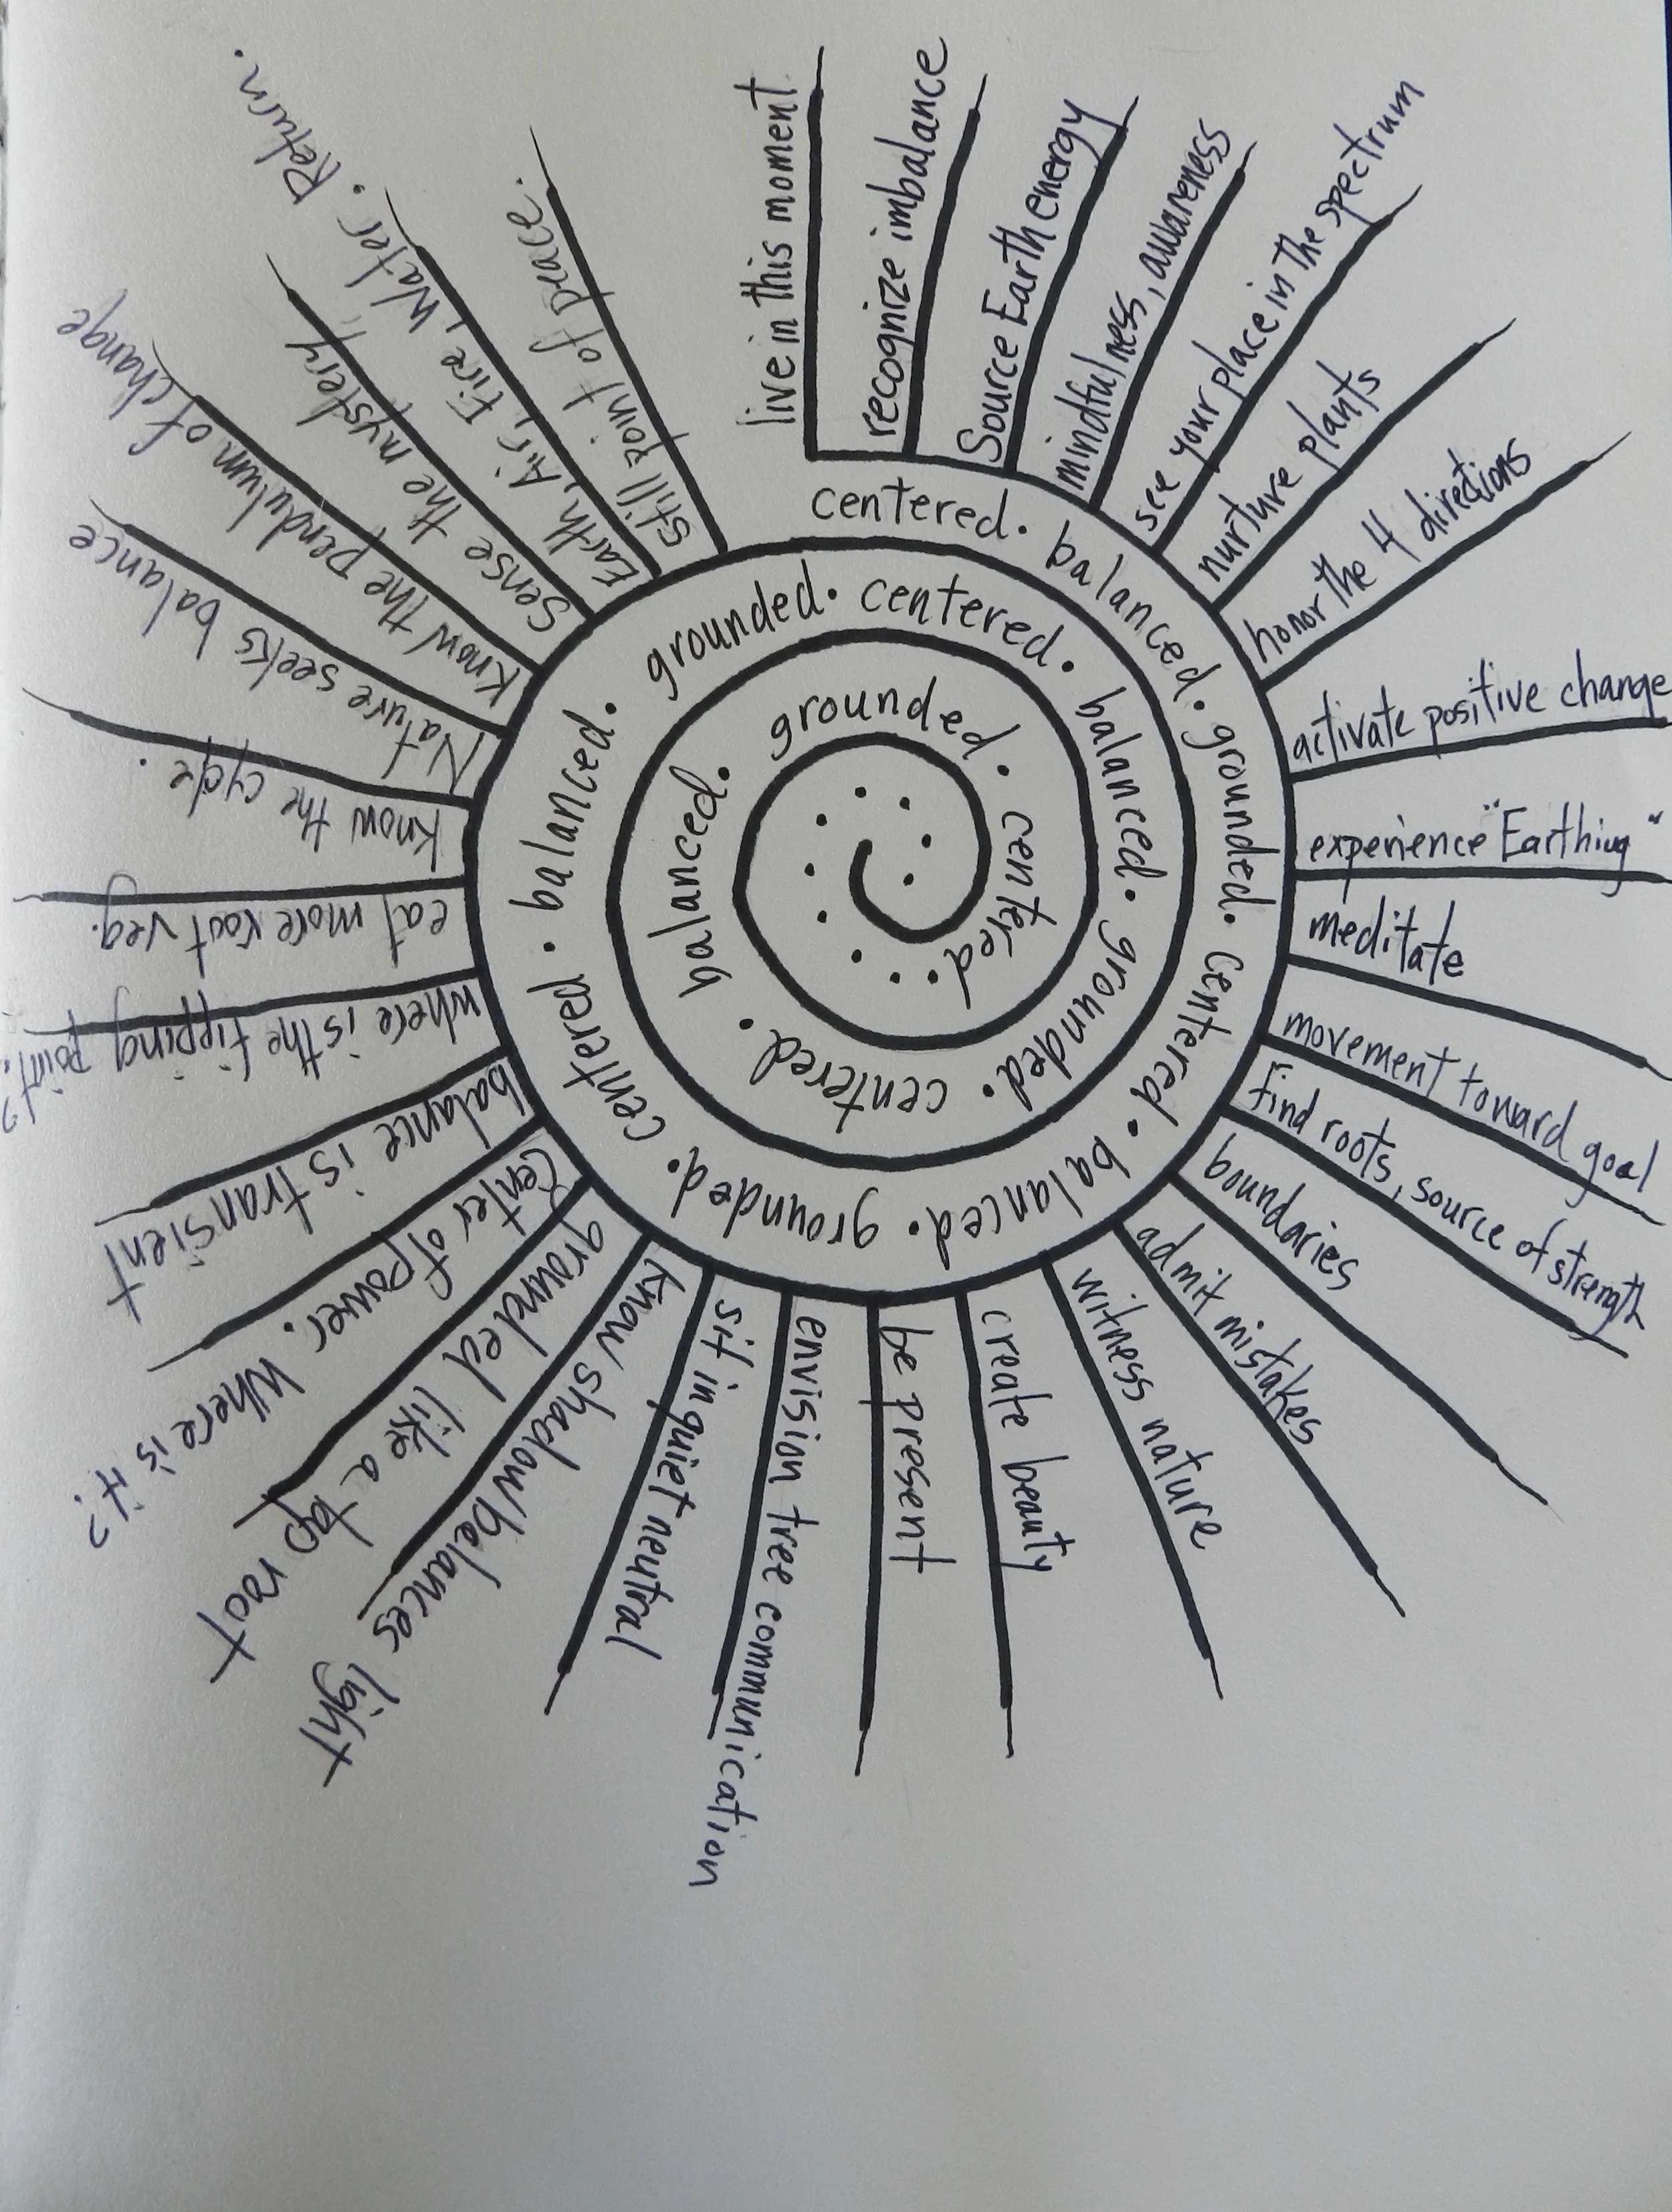 live in this moment
recognize imbalance
Source Earth energy
mindfulness, awareness
see your place in the spectrum
nurture plants
honor the 4 directions
activate positive change
experience "Earthing"
meditate
movement toward goal
find roots, source of strength
boundaries
admit mistakes
witness nature
create beauty
be present
envision tree communication
sit in quiet neutral
know shadow belances light
grounded like a tap root
Center of power. Where is it?
balance is transient
where is the tipping point?
eat more root veg.
know the cycle.
Nature seeks balance
Know the pendulum of change
Sense the mystery
Earth, Air, Fire, Water. Return.
Still point of peace.
centered. balanced. grounded. centered. balanced. grounded. centered. balanced. grounded. centered. balanced. grounded. centered. balanced. grounded. centered.